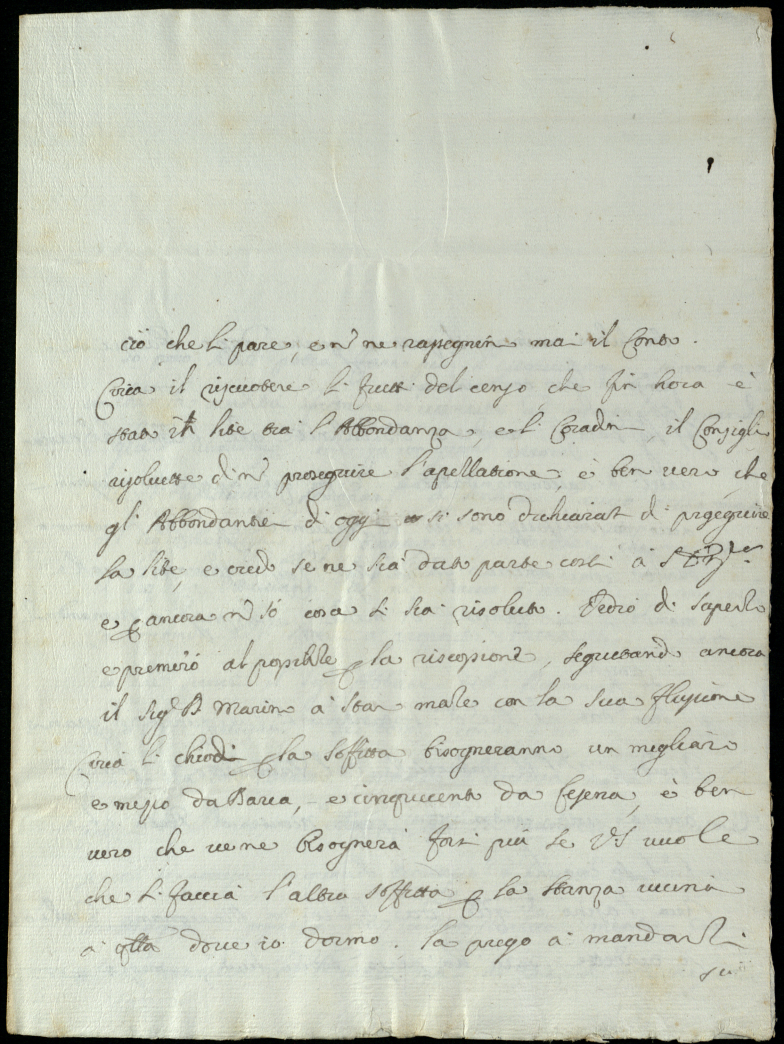 ciò che li pare, e nō ne rassegnin mai il Conto.
Circa il riscuotere li frutti del censo, che fin hora è
stato in lite tra l'Abbondanza, e li Coradini, il Consiglio
risoluette di nō proseguire l'apellatione, è ben uero che
gl'Abbondantieri di oggi si sono dichiarati di proseguire
la lite, e credo se ne sia dato parte costì à
e p ancora nō sò cosa si sia risoluto. Uedrò di saperlo
e premerò al possibile p la riscossione, seguitando ancora
il Sigr B Marino à star male con la sua flussione
Circa li chiodi p la soffitta bisogneranno un migliaro
e mezzo da Barca, e cinquecento da, è ben
uero che ue ne bisognerà forsi più se VS uuole
che si faccia l'altra soffitta p la stanza uicina
à qlla doue io dormo. la prego à mandarli
sui